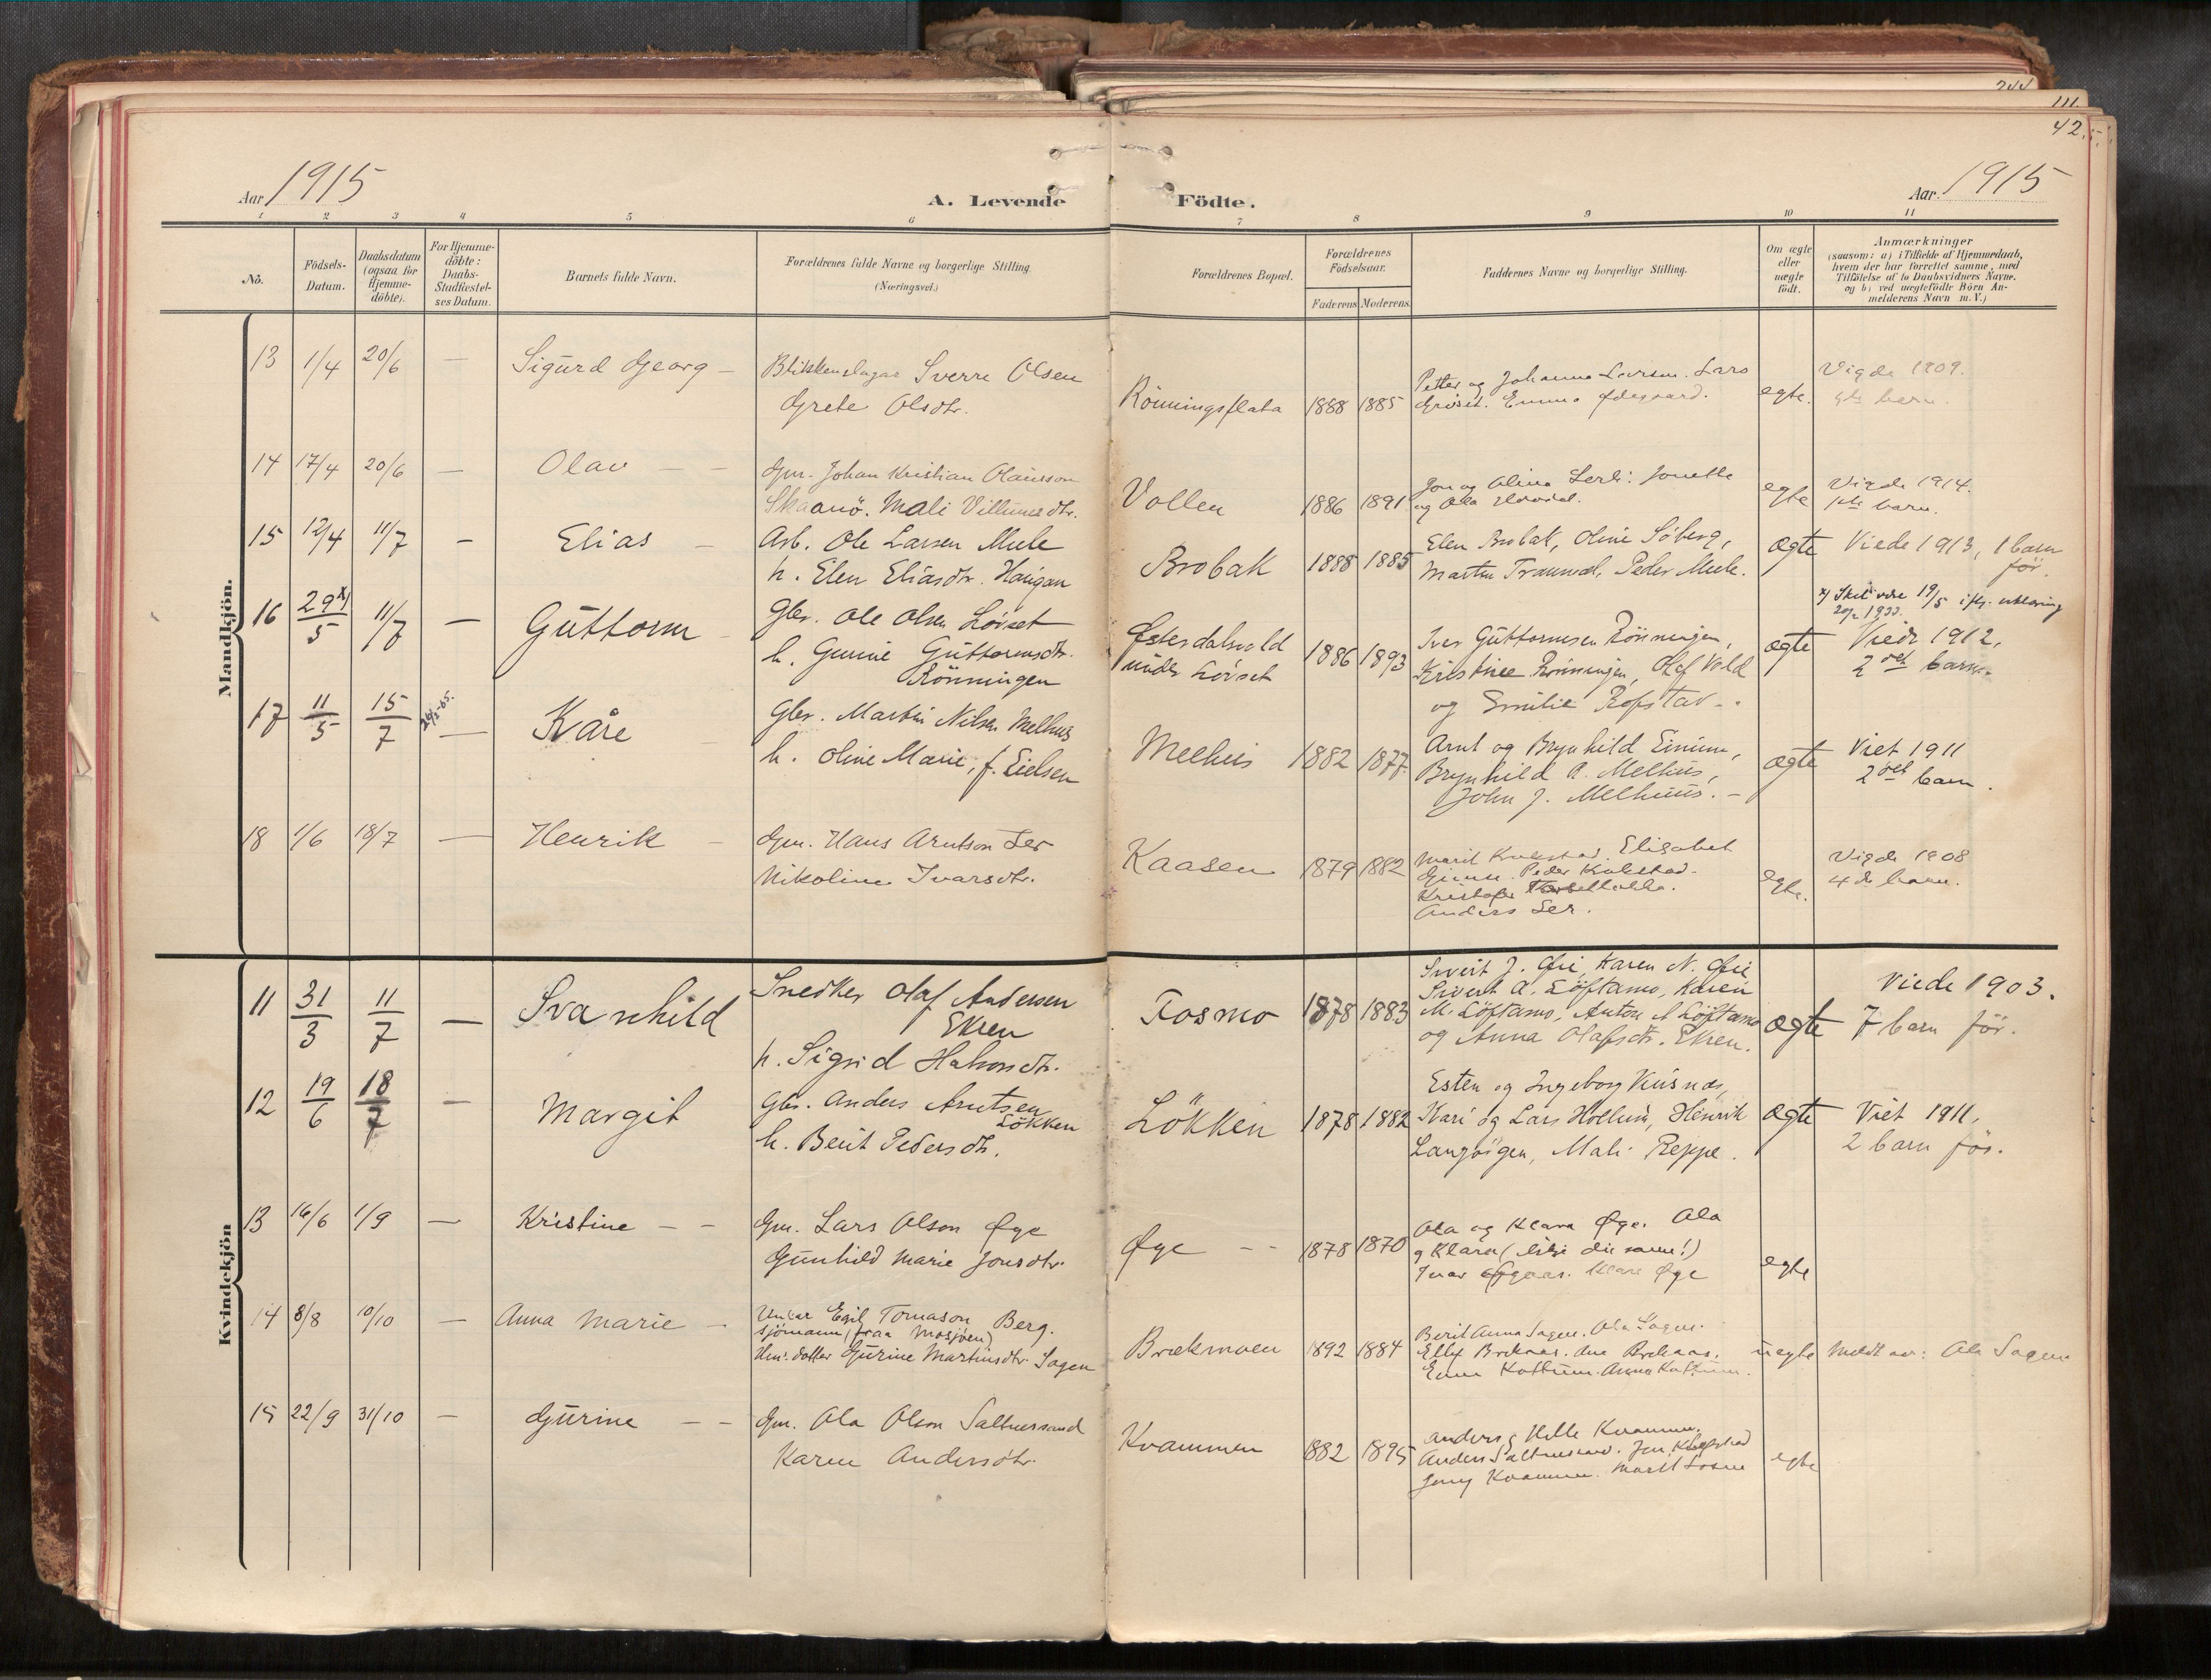 244
111.
42.
Aar 1915
A. Levende Födte.
Aar 1915
1 2 3 4 5 6 7 8 9 10 11
No.
Födsels-
Datum.
Daabsdatum
(ogsaa for
Hjemme-
döbte).
For Hjemme-
döbte:
Daabs-
Stadfæstel-
ses Datum.
Barnets fulde Navn.
Forældrenes fulde Navne og borgerlige Stilling.
(Næringsvei.)
Forældrenes Bopæl.
Forældrenes
Födselsaar.
Faderens Moderens
Faddernes Navne og borgerlige Stilling.
Om ægte
eller
uægte
födt.
Anmærkninger
(saasom: a) i Tilfælde af Hjemmedaab,
hvem der har forrettet samme, med
Tilföielse af to Daabsvidners Navne.
og b) ved uægtefödte Börn An-
melderens Navn m. V.)
Mandkjön.
13 1/4 20/6 — Sigurd Georg —
Blikkenslagar Sverre Olsen
Grete Olsdtr.
Rönningsflata 1888 1885
Petter og Johanna Larsen. Lars
Gröset. Emma Ødegaard.
egte.
Vigde 1909.
barn.
14 17/4 20/6 — Olav — —
Gm. Johan Kristian Olausson
Skaanö. Mali Villumsdtr.
Vollen 1886 1891
Jon og Olina Lerli: Jonetta
og Ola
egte
Vigde 1914.
1ste barn.
15 12/4 11/7 — Elias —
Arb. Ole Larsen Mule
h. Elen Eliasdtr. Haugan
Brobak 1888 1885
Elen Brobak, Oline Söberg,
Martin Tranmæl, Peder Mule.
ægte
Viede 1913, 1 barn
för.
16 29x)/5 11/7 — Guttorm —
Gbr. Ole Olsen Lövset
h. Gurine Guttormsdtr.
Rönningen
Østerdalsvold
under Lövset 1886 1893
Iver Guttormsen Rönningen,
Kristine Rönningen, Olaf Vold
og Emilie Ropstad.
ægte
x) Skal være 19/5 ifg. erklæring
Viede 1912.
2det barn.
17 11/5 15/7 — Kåre
Gbr. Martin Nilsen Melhus
h. Oline Marie, f. Eielsen
Melhus 1882 1877
Arnt og Brynhild Einum,
Brynhild A. Melhus,
John J. Melhuus. —
ægte
Viet 1911
2det barn.
18 1/6 18/7 — Henrik —
Gm. Hans Arntson Ler
Nikoline Ivarsdtr.
Kaasen 1879 1882
Marit Kulestad. Elisabet
Gimse. Peder Kulestad.
Kristofer
Anders Ler.
egte.
Vigde 1908
4de barn.
Kvindekjön
11 31/3 11/7 — Svanhild
Snedker Olaf Andersen
Ekren
h. Sigrid Halvorsdtr.
Fosmo 1878 1883
Sivert J. Øie, Karen N. Øie
Sivert A. Löftamo, Karen
M. Löftamo, Anton A Löftamo
og Anna Olafsdtr. Ekren.
ægte
Viede 1903.
7 barn för.
12 19/6 18/7 — Margit
Gbr. Anders Arntsen
Lökken
h. Berit Pedersdtr.
Lökken 1878 1882
Esten og Ingeborg Kusnæs,
Kari og Lars Hollum, Henrik
Langörgen, Mali Reppe.
ægte
Viet 1911.
2 barn för.
13 16/6 1/9 — Kristine — —
Gm. Lars Olson Øye
Gunhild Marie Jonsdtr.
Øye — — 1878 1870
Ola og Klara Øye. Ola
og Klara (ikkje dei same!)
Ivar Øygaar. Klara Øye
egte
14 8/8 10/10 — Anna Marie —
Unkar Egil Tomason Berg.
sjömann (fraa Mosjöen)
Hus.dotter Gurine Martinsdtr. Sagen
Brækmoen 1892 1884
Berit Anna Sagen. Ola Sagen.
uegte
Meldt av: Ola Sagen
15 22/9 31/10 — Gurine — —
Gm. Ola Olson Saltnessand
Karen Andersdtr.
Kvammen 1882 1895
Anders, Helle Kvammen.
Anders Saltnessand. Jon
Jenny Kvammen. Marit
egte